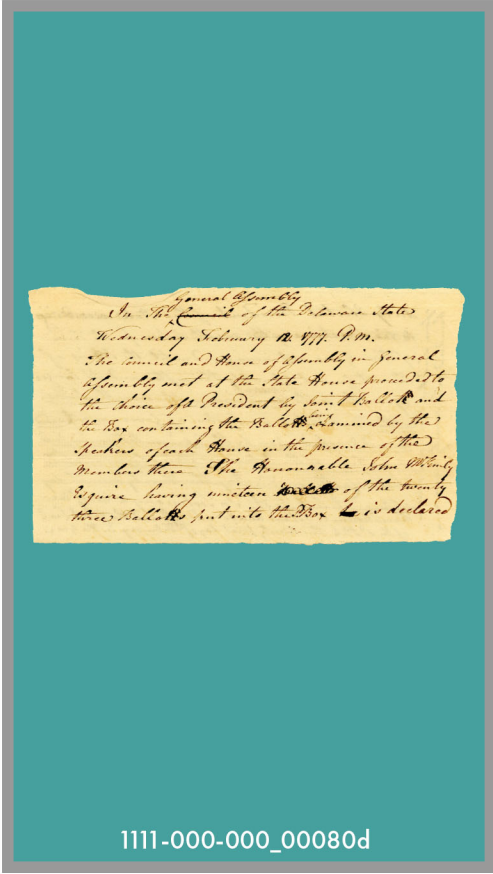 General Assembly
In The Council of the Delaware State
Wednesday February 12. 1777. P.M.
The Council and House of Assembly in General
Assembly met at the State House proceeded to
the Choice of a President by Joint Ballott and
the Box containing the Ballotts being examined by the
Speakers of each House in the presence of the
Members there The Honourable John McKinly
Esquire having nineteen of the twenty
three Ballotts put into the Box is declared
1111-000-000_00080d